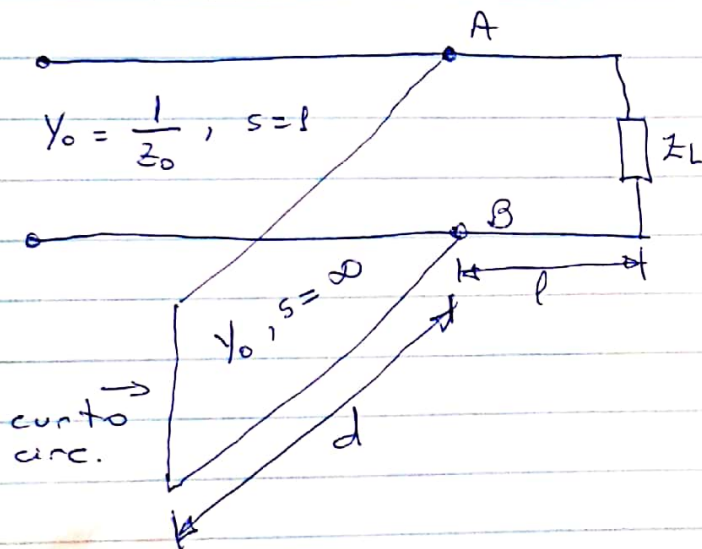 A
Y₀ = 1/Z₀ , s=1
ZL
B
l
Y₀ , s=∞
curto →
circ.
d